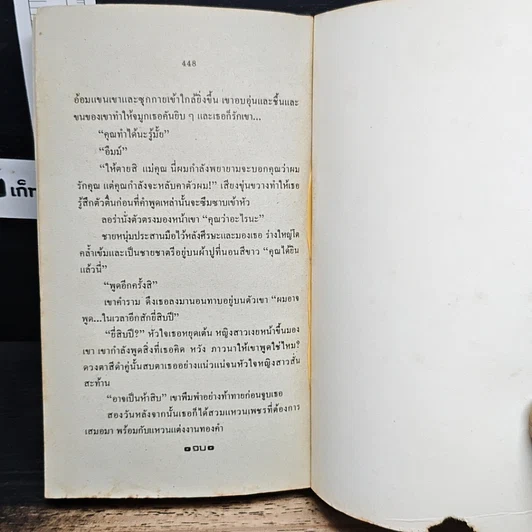 448
อ้อมแขนเขาและซุกกายเข้าใกล้ยิ่งขึ้น เขาอบอุ่นและชื้นและ
ขนของเขาทำให้จมูกเธอคันยิบ ๆ และเธอก็รักเขา...
“คุณทำได้นะรู้มั้ย”
“อืมม์”
“ให้ตายสิ แม่คุณ นี่ผมกำลังพยายามจะบอกคุณว่าผม
รักคุณ แต่คุณกำลังจะหลับคาตัวผม!” เสียงขุ่นขวางทำให้เธอ
รู้สึกตัวตื่นก่อนที่คำพูดเหล่านั้นจะซึมซาบเข้าหัว
ลอร่านั่งตัวตรงมองหน้าเขา “คุณว่าอะไรนะ”
ชายหนุ่มประสานมือไว้หลังศีรษะและมองเธอ ร่างใหญ่โต
คล้ำเข้มและเป็นชายชาตรีอยู่บนผ้าปูที่นอนสีขาว “คุณได้ยิน
แล้วนี่”
“พูดอีกครั้งสิ”
เขาคำราม ดึงเธอลงมานอนทาบอยู่บนตัวเขา “ผมอาจ
พูด...ในเวลาอีกสักยี่สิบปี”
“ยี่สิบปี?” หัวใจเธอหยุดเต้น หญิงสาวเงยหน้าขึ้นมอง
เขา เขากำลังพูดสิ่งที่เธอคิด หวัง ภาวนาให้เขาพูดใช่ไหม?
ดวงตาสีดำคู่นั้นสบตาเธออย่างแน่วแน่จนหัวใจหญิงสาวสั่น
สะท้าน
“อาจเป็นห้าสิบ” เขาพึมพำอย่างท้าทายก่อนจูบเธอ
สองวันหลังจากนั้นเธอก็ได้สวมแหวนเพชรที่ต้องการ
เสมอมา พร้อมกับแหวนแต่งงานทองคำ
จบ
เก็ท